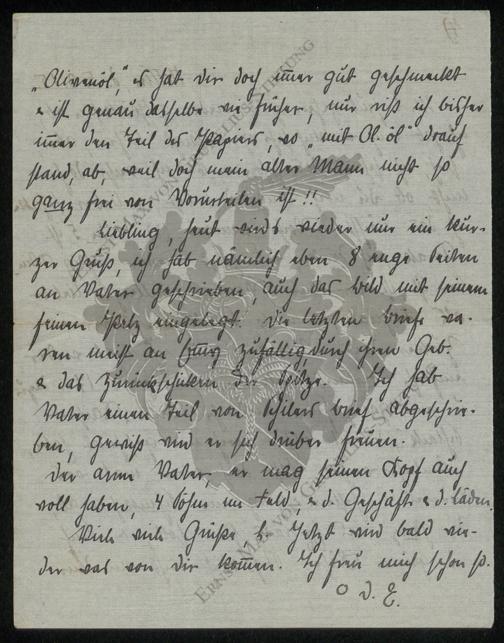 „Olivenöl", es hat dir doch immer gut geschmeckt
& ist genau dasselbe wie früher, nur riß ich bisher
immer den Teil des Papiers, wo „mit Ol. öl" drauf
stand, ab, weil doch mein alter Mann nicht so
ganz frei von Vorurteilen ist!!
Liebling, heut wird's wieder nur ein kur-
zer Gruß, ich hab nämlich eben 8 enge Seiten
an Vater geschrieben, auch das Bild mit seinem
feinen Pelz eingelegt. Die letzten Briefe wa-
ren meist an zufällig durch ihren Geb.
& das der Spitze. Ich hab
Vater einen Teil von Brief abgeschrie-
ben, gewiß wird er sich drüber freuen.
Der arme Vater, er mag seinen Kopf auch
voll haben, 4 Söhne im Feld, & d. Geschäft & d. Läden.
Viele viele Grüße, Jetzt wird bald wie-
der was von dir kommen. Ich freu mich schon so.
D. E.